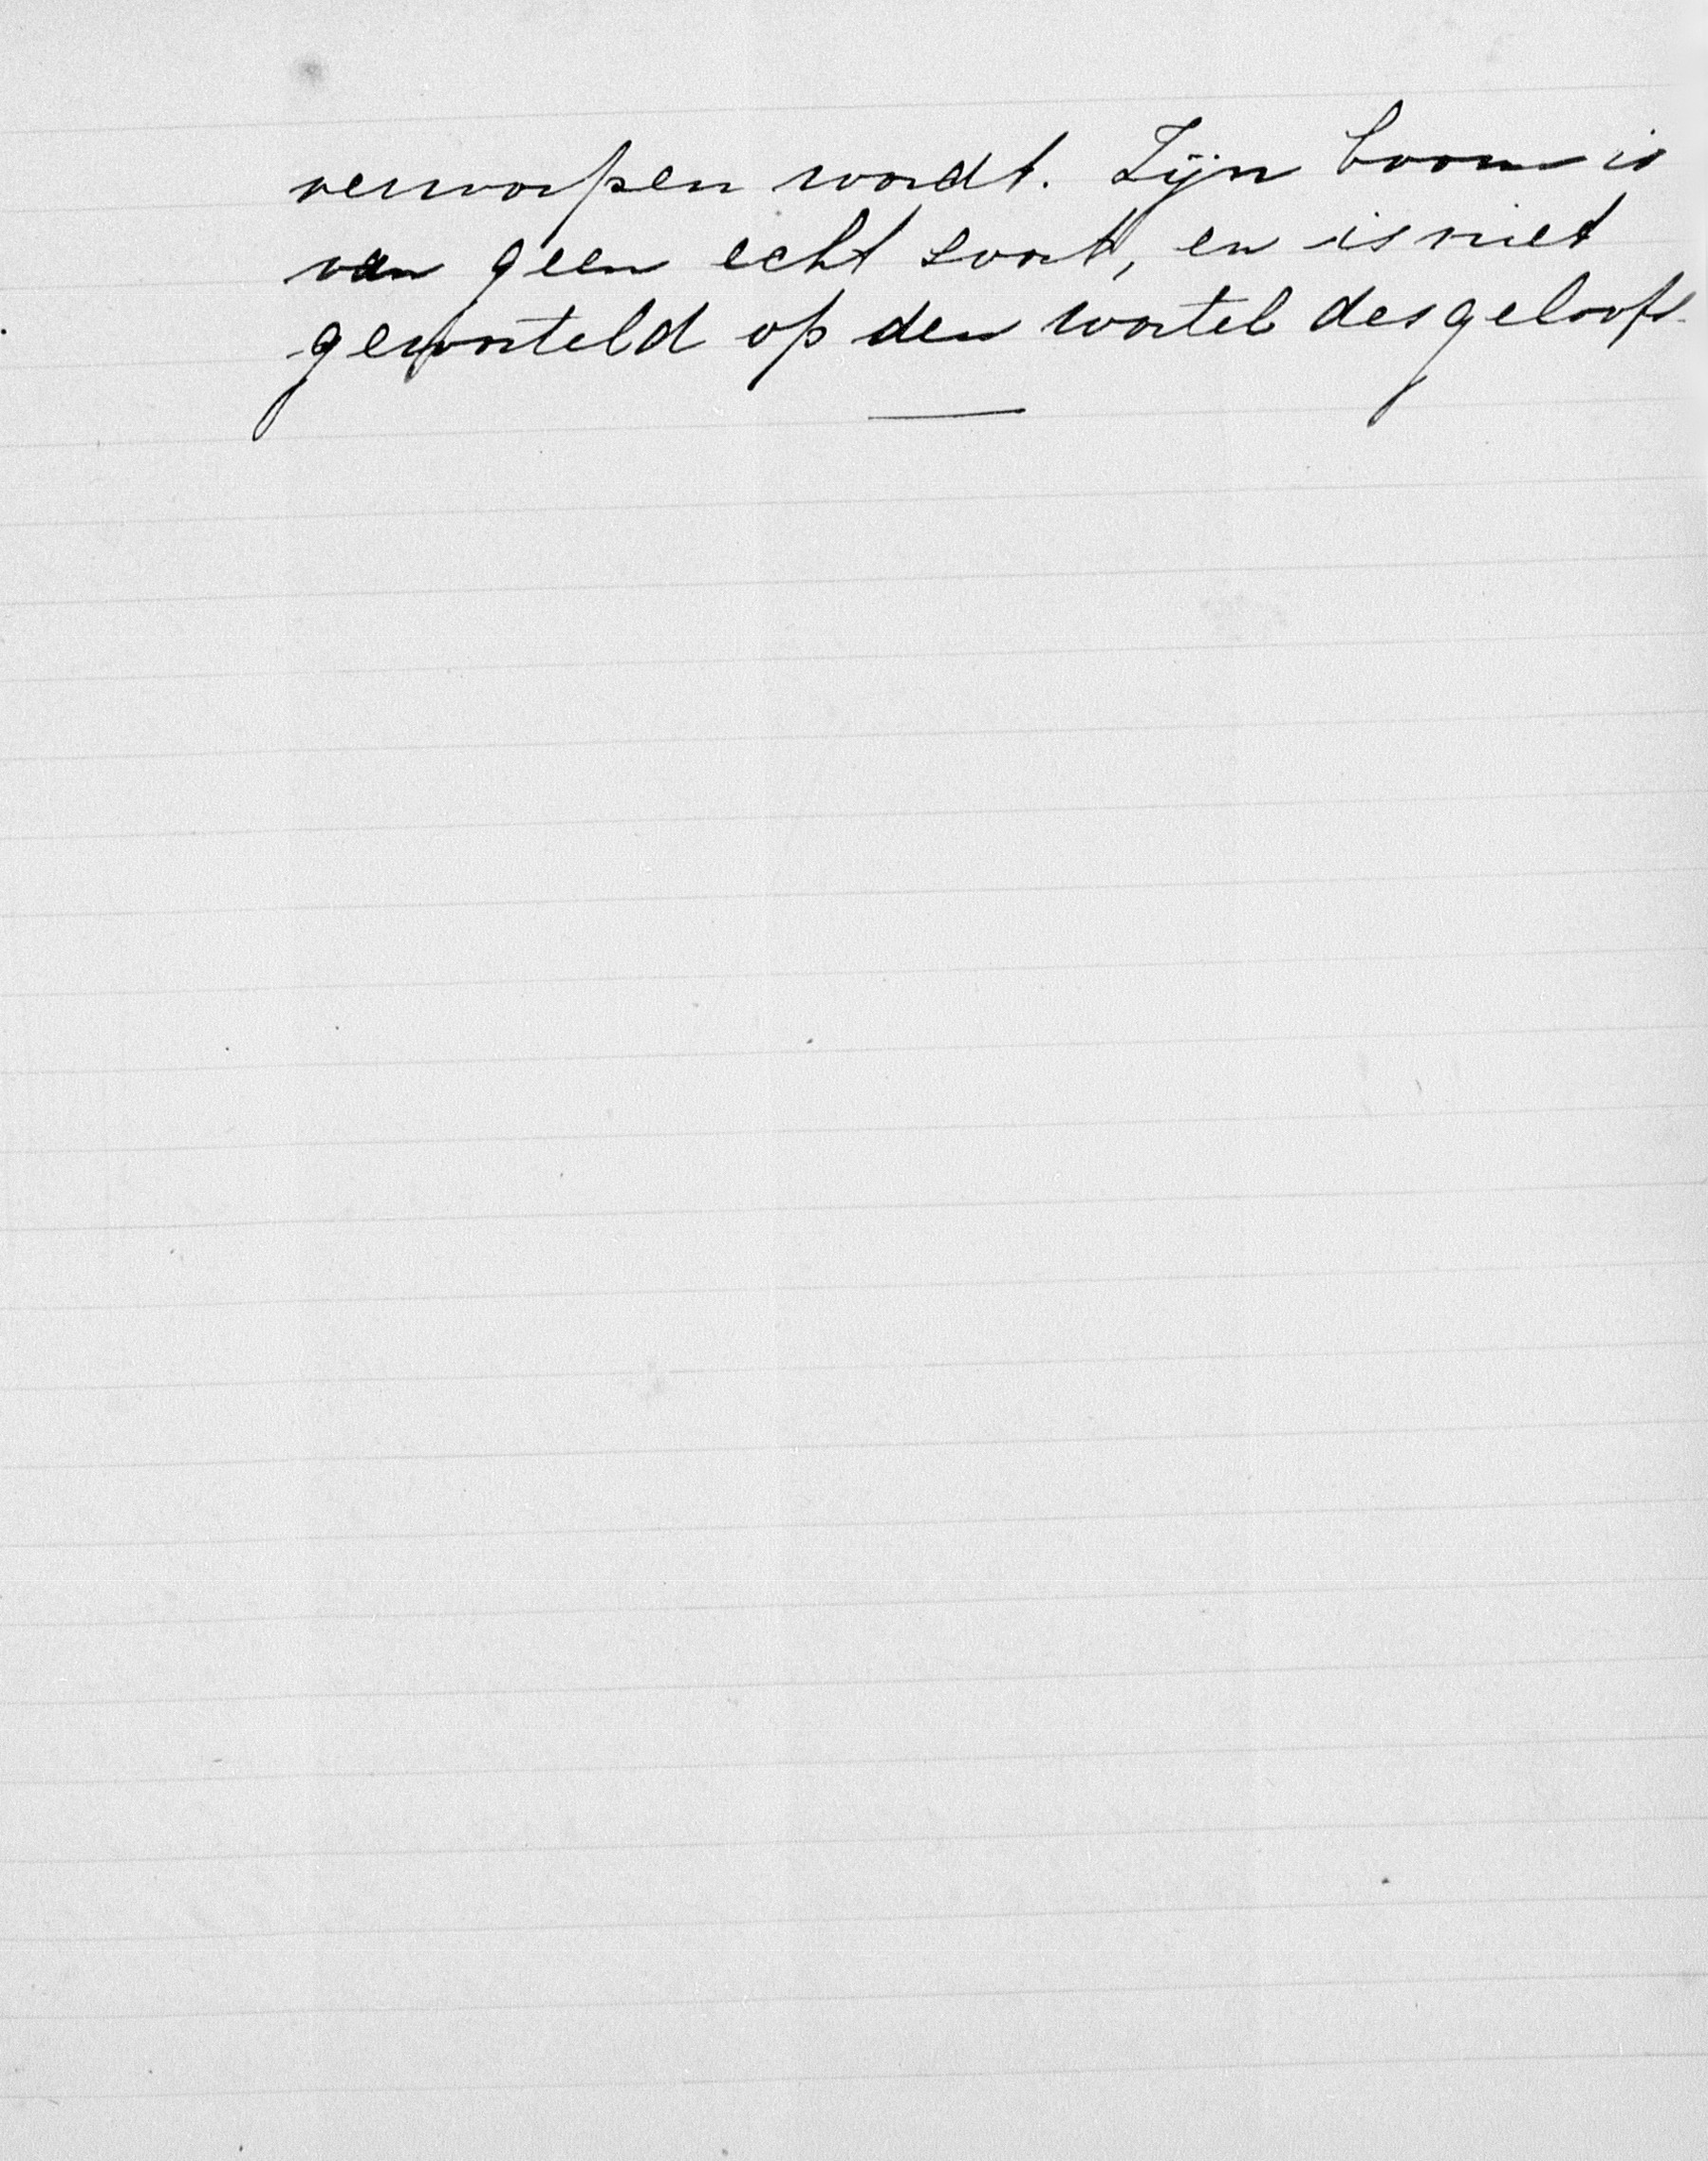 verworpen wordt. Zijn boom is
van geen echt soort, en is niet
geworteld op den wortel des geloofs.